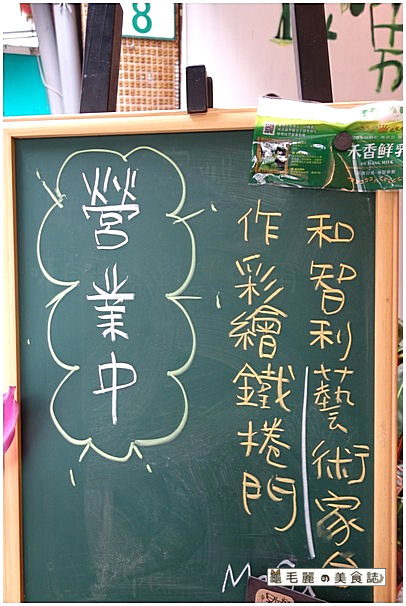 8
禾香鮮乳
和智利藝術家合
作彩繪鐵捲門
營業中
毛麗の美食誌